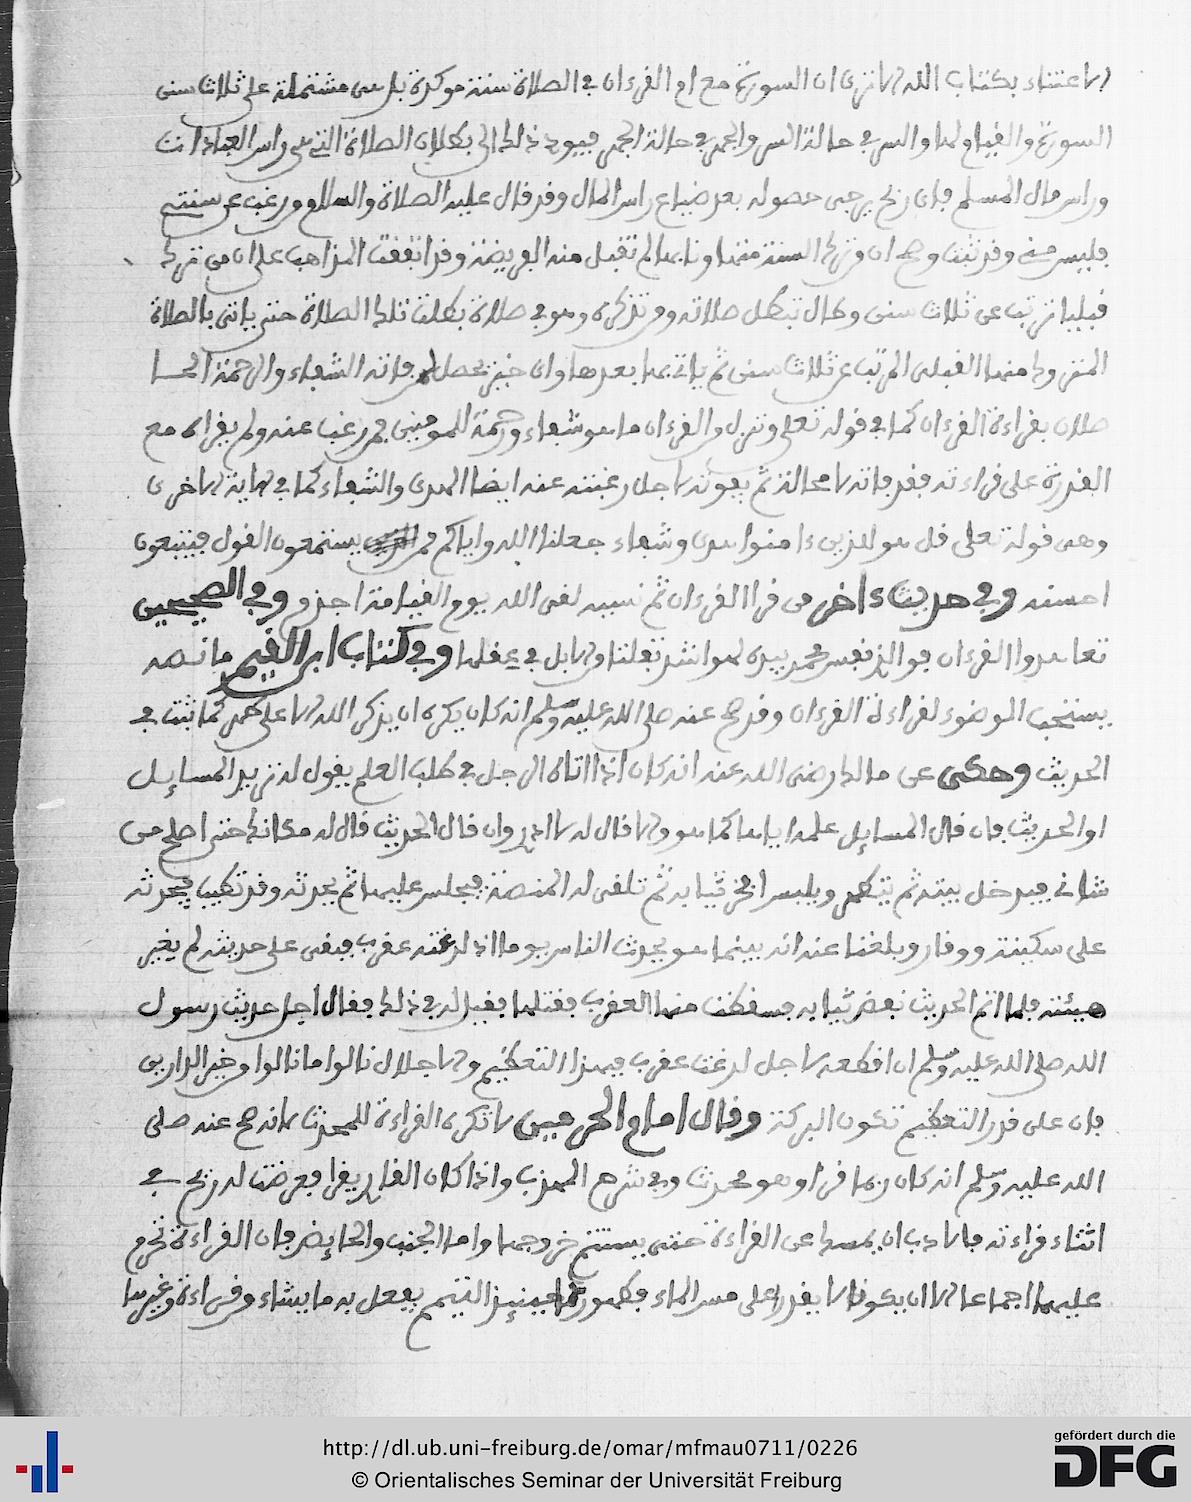 الاعتناء بكتاب الله الا ترى ان السورة مع ام القرءان في الصلاة سنة موكدة بل هي مشتملة على ثلاث سنن
السورة والقيام لها والسر في حالة السر والجهر في حالة الجهر فيود ذلك الى بطلان الصلاة التي هي راس العبادات
وراس مال المسلم فاي ربح يرجى حصوله بعد ضياع راس المال وقد قال عليه الصلاة والسلام ومن رغب عن سنتي
فليس مني وقد ثبت وصح ان من ترك السنة متهاونا بها لم تقبل منه الفريضة وقد اتفقت المذاهب على ان من ترك
قبليا ترتب عن ثلاث سنن وطال تبطل صلاته وان تذكره وهو في صلاة بطلت تلك الصلاة حتى ياتي بالصلاة
المتروك منها القبلي المرتب عن ثلاث سنن ثم ياتي بما بعدها واي خير يحصل لمن فاته الشفاء والرحمة الحـا
صلان بقراءة القرءان كما في قوله تعلى وننزل من القرءان ما هو شفاء ورحمة للمومنين فمن رغب عنه ولم يقراه مع
القدرة على قراءته فقد فاته لا محالة ثم يفوته لاجل رغبته عنه ايضا الهدى والشفاء كما في الاية الاخرى
وهي قوله تعلى قل هو للذين ءامنوا هدى وشفاء جعلنا الله واياكم ممن يستمعون القول فيتبعون
احسنه وفي حديث ءاخر من قرا القرءان ثم نسيه لقي الله يوم القيامة اجذم وفي الصحيحين
تعاهدوا القرءان فوالذي نفس محمد بيده لهو اشد تفلتا من الابل في عقلها وفي كتاب ابن القيم ما نصه
يستحب الوضوء لقراءة القرءان وقد صح عنه صلى الله عليه وسلم انه كان يكره ان يذكر الله الا على طهر كما ثبت في
الحديث وحكي عن مالك رضي الله عنه انه كان اذا اتاه الرجل في طلب العلم يقول له تريد المسايل
او الحديث فان قال المسايل علمه اياها كما هو والا قال له لا ادر وان قال الحديث قال له مكانك حتى اصلح من
شاني فيدخل بيته ثم يتطهر ويلبس افخر ثيابه ثم تلقى له المنصة فيجلس عليها ثم يحدثه وقد تطيب فيحدثه
على سكينة ووقار وبلغنا عنه انه بينما هو يحدث الناس يوما اذ لدغته عقرب فبقى على حديثه لم يغير
هيئته فلما اتم الحديث نفض ثيابه فسقطت منها العقرب فقتلها فقيل له في ذلك فقال اجل حديث رسول
الله صلى الله عليه وسلم ان اقطعه لاجل لدغت عقرب فبهذا التعظيم والاجلال نالوا ما نالوا من خير الدارين
فان على قدر التعظيم تكون البركة وقال امام الحرمين لا تكره القراءة للمحدث لانه صح عنه صلى
الله عليه وسلم انه كان ربما قرا وهو محدث وفي شرح المهذب واذا كان القارئ يقرا فعرضت له ريح في
اثناء قراءته فالادب ان يمسك عن القراءة حتى يستتم خروجها واما الجنب والحايض فان القراءة تحرم
عليهما اجماعا الا ان يكونا لا يقدرا على مس الماء فطهورهما حينئذ التيمم يفعل به ما يشاء من قراءة وغيرها
http://dl.ub.uni-freiburg.de/omar/mfmau0711/0226
© Orientalisches Seminar der Universität Freiburg
gefördert durch die
DFG